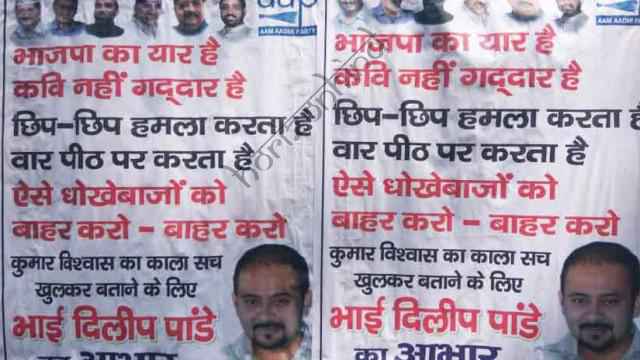 aap
AAM AADMI PARTY
भाजपा का यार है
कवि नहीं गद्दार है
छिप-छिप हमला करता है
वार पीठ पर करता है
ऐसे धोखेबाजों को
बाहर करो - बाहर करो
कुमार विश्वास का काला सच
खुलकर बताने के लिए
भाई दिलीप पांडे
का आभार
AAM AADMI PARTY
भाजपा का यार है
कवि नहीं गद्दार है
छिप-छिप हमला करता है
वार पीठ पर करता है
ऐसे धोखेबाजों को
बाहर करो - बाहर करो
कुमार विश्वास का काला सच
खुलकर बताने के लिए
भाई दिलीप पांडे
का आभार